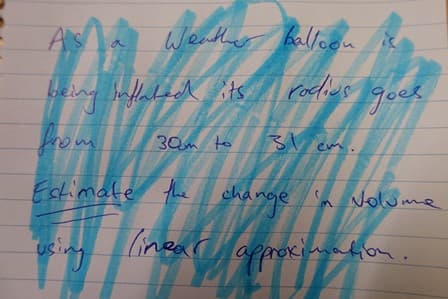 As a Weather balloon is
being inflated its radius goes
from 30cm to 31 cm.
Estimate the change in Volume
using linear approximation.